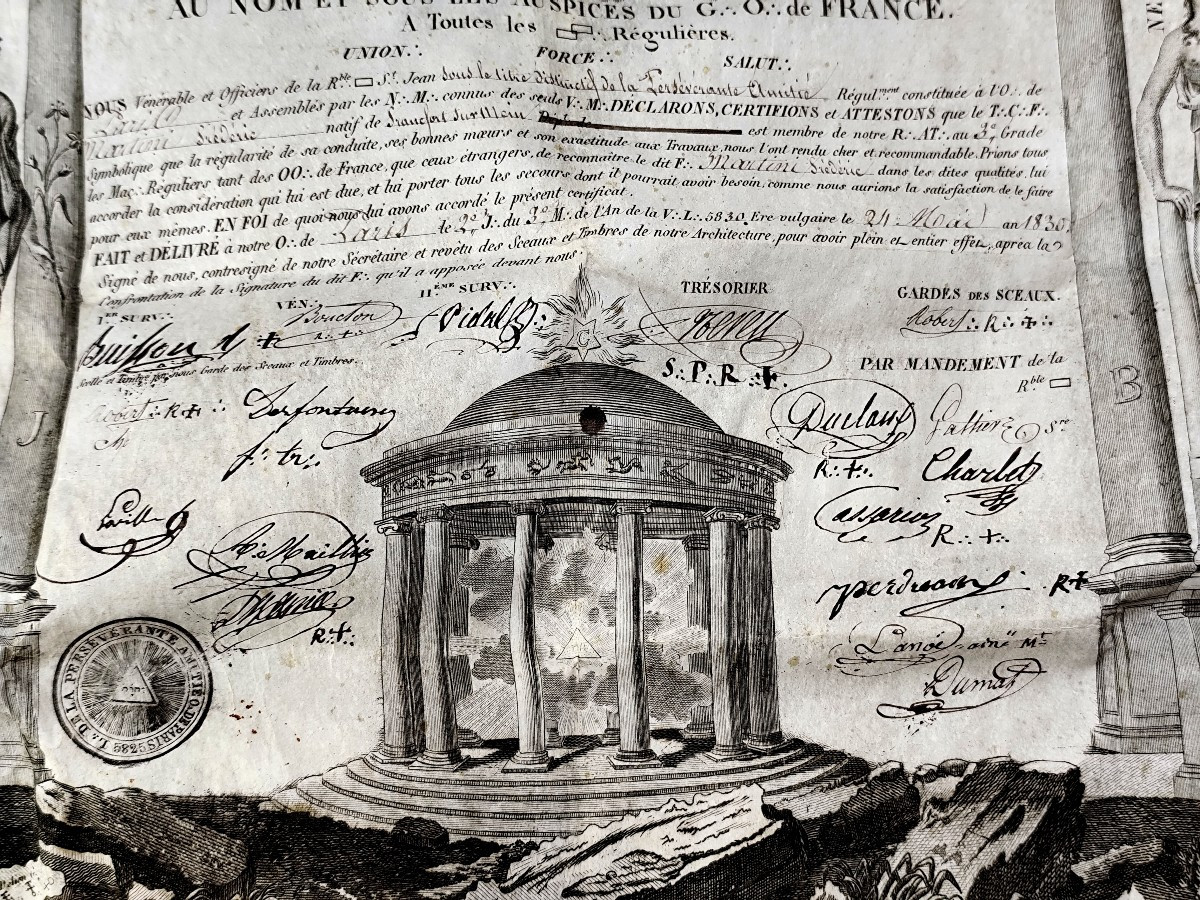 AU NOM ET SOUS LES AUSPICES DU G.·. O.·. de FRANCE.
A Toutes les ▭▭.·. Régulières.
UNION.·. FORCE.·. SALUT.·.
NOUS Vénérable et Officiers de la R.ble ▭ S.t Jean sous le titre distinctif de la Persévérante Amitié Régul.ment constituée à l'O.·. de
Paris et Assemblés par les N.·. M.·. connus des seuls V.·. M.·. DECLARONS, CERTIFIONS et ATTESTONS que le T.·. C.·. F.·.
Martini fréderic natif de Francfort sur Mein est membre de notre R.·. AT.·. au 3.e Grade
Symbolique que la régularité de sa conduite, ses bonnes mœurs et son exactitude aux Travaux, nous l'ont rendu cher et recommandable. Prions tous
les Maç.·. Réguliers tant des OO.·. de France, que ceux étrangers, de reconnaître le dit F.·. Martini fréderic dans les dites qualités, lui
accorder la considération qui lui est due, et lui porter tous les secours dont il pourrait avoir besoin, comme nous aurions la satisfaction de le faire
pour eux mêmes. EN FOI de quoi nous lui avons accordé le présent certificat.
FAIT et DELIVRÉ à notre O.·. de Paris le 2.e J.·. du 3.e M.·. de l'An de la V.·. L.·. 5830. Ere vulgaire le 24 Mai an 1830.
Signé de nous, contresigné de notre Secrétaire et revêtu des Sceaux et Timbres de notre Architecture, pour avoir plein et entier effet, après la
Confrontation de la Signature du dit F.·. qu'il a apposée devant nous.
I.ER SURV.·. VÉN.·. II.ÈME SURV.·. TRÉSORIER GARDES DES SCEAUX.
Buisson Bouclon Vidal Robert.·. R.·. +.·.
S.·. P.·. R.·. +.·.
Scellé et Timbré par nous Garde des Sceaux et Timbres. PAR MANDEMENT de la
R.ble ▭
Robert.·. R.+.·. Desfontaines Duclaux S.re
R.·. +.·. Charlet
Cassarius
R.·. +.·.
Maillie
R.·. +.·.
R+
Lanoé aîné M.e
Dumas
G
J
B
L.·. DE LA PERSÉVÉRANTE AMITIÉ O. DE PARIS 5825
NE